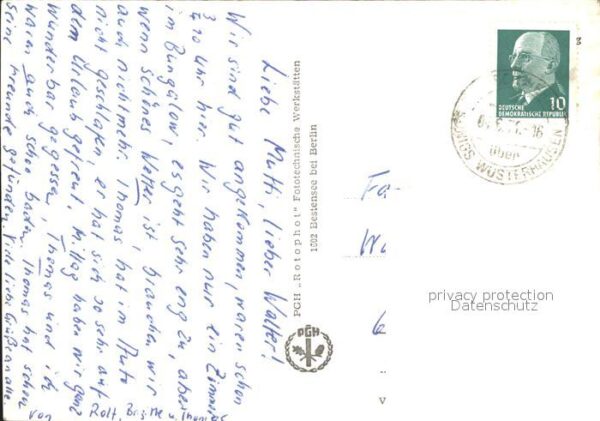 Liebe Mutti, lieber Walter!
Wir sind gut angekommen, waren schon
3 Uhr hier. Wir haben nur ein Zimmer
im Bungalow, es geht sehr eng zu, aber
wenn schönes Wetter ist brauchen wir
auch nicht mehr. Thomas hat im Auto
nicht geschlafen, er hat sich so sehr auf
dem Urlaub gefreut. Mittag haben wir ganz
wunderbar gegessen, Thomas und ich
waren auch schon baden. Thomas hat schon
seine Freunde gefunden. Viele liebe Grüße an alle.
von Rolf, u. Thomas
PGH „Rotophot“ Fototechnische Werkstätten
1602 Bestensee bei Berlin
PGH
DEUTSCHE
DEMOKRATISCHE REPUBLIK
10
16
über
KÖNIGS WUSTERHAUSEN
Fa
W
privacy protection
Datenschutz
V